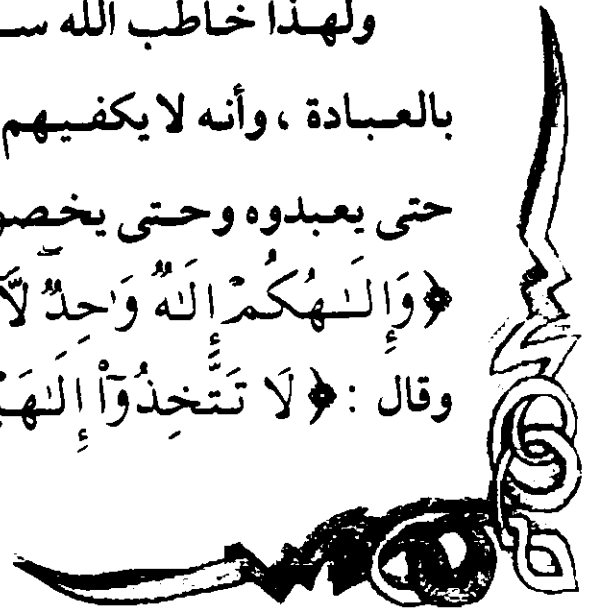 ولهذا خاطب الله
بالعبادة ، وأنه لا يكفيهم
حتى يعبدوه وحتى
﴿وَإِلَـٰهُكُمْ إِلَـٰهٌ وَٰحِدٌ لَّآ
وقال : ﴿ لَا تَتَّخِذُوٓا۟